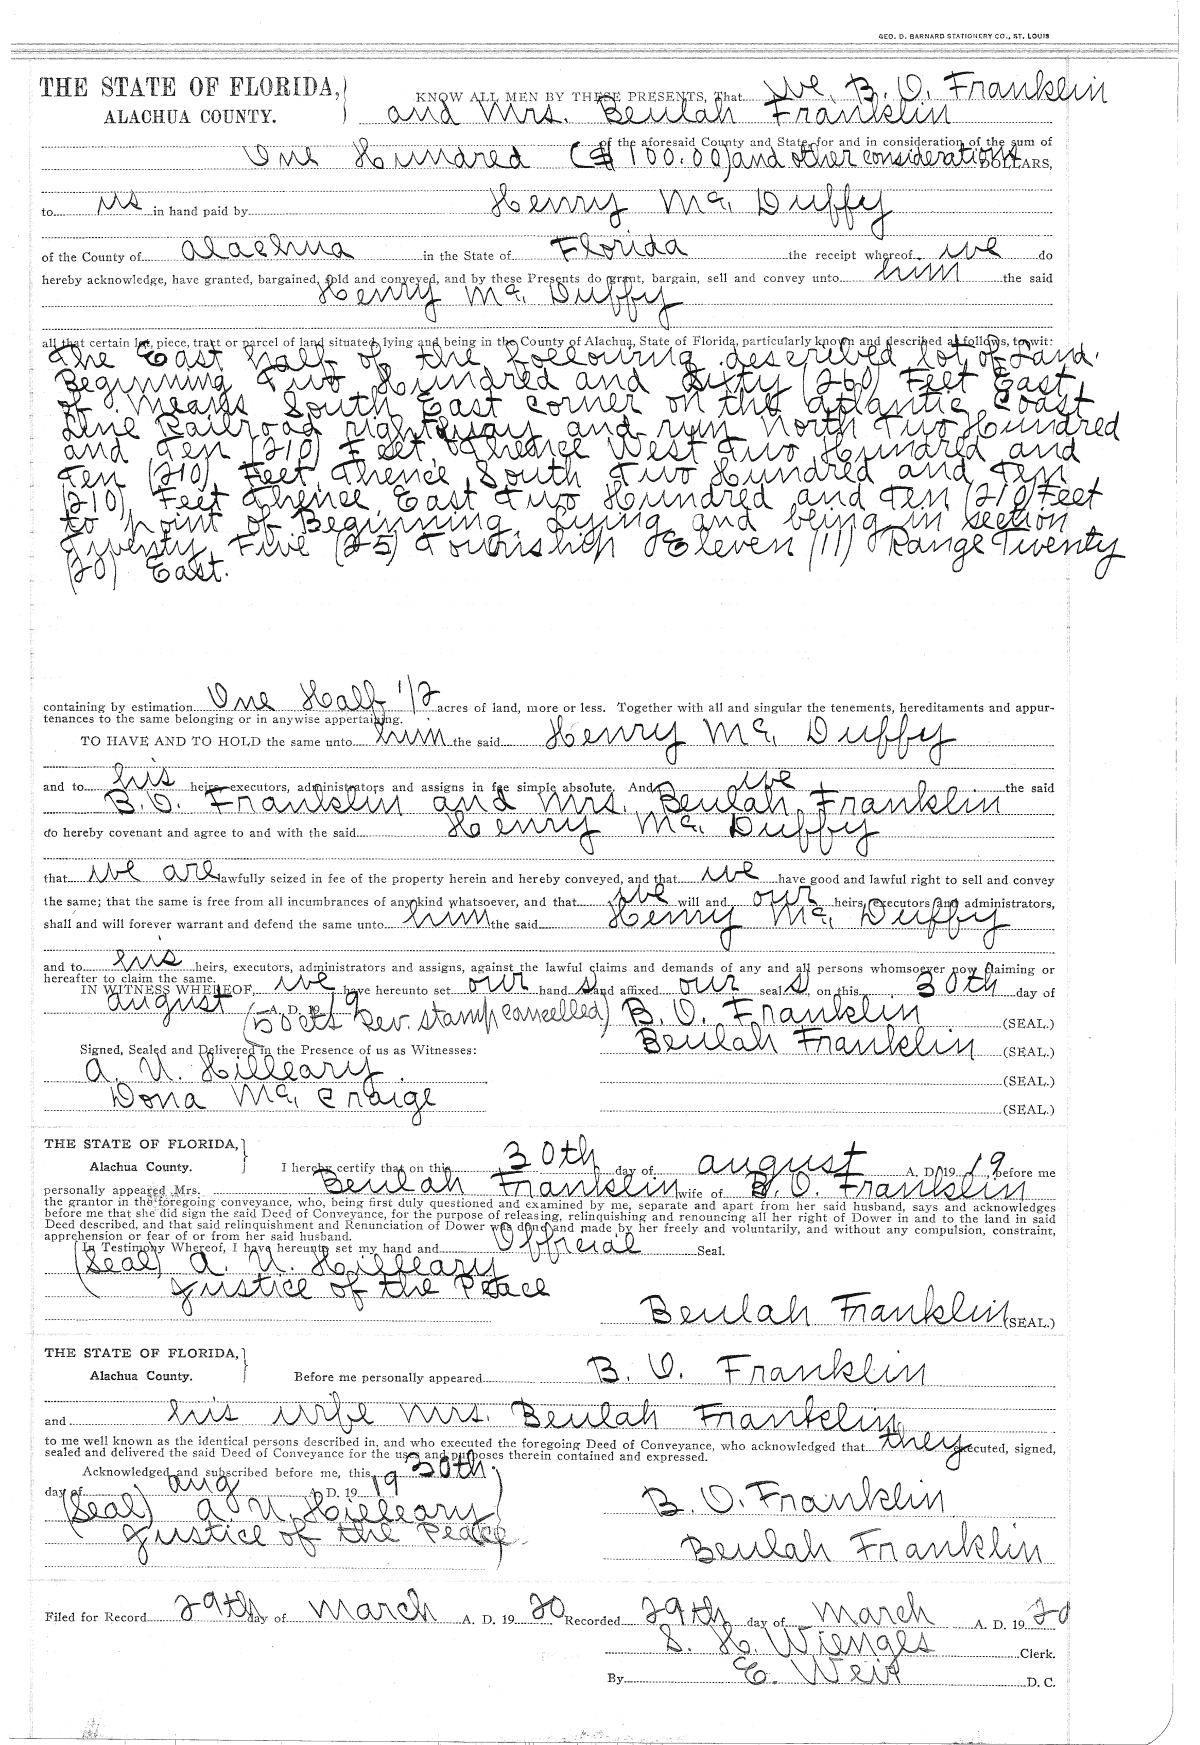 GEO. D. BARNARD STATIONERY CO., ST. LOUIS
THE STATE OF FLORIDA,
ALACHUA COUNTY.
KNOW ALL MEN BY THESE PRESENTS, That We, B. O. Franklin
and Mrs. Beulah Franklin
of the aforesaid County and State, for and in consideration of the sum of
One Hundred ($100.00) and other considerations DOLLARS,
to us in hand paid by Henry Mc. Duffy
of the County of Alachua in the State of Florida the receipt whereof we do
hereby acknowledge, have granted, bargained, sold and conveyed, and by these Presents do grant, bargain, sell and convey unto him the said
Henry Mc. Duffy
all that certain lot, piece, tract or parcel of land situated, lying and being in the County of Alachua, State of Florida, particularly known and described as follows, to-wit:
The East half of the following described lot of Land.
Beginning Two Hundred and Sixty (260) Feet East
of Means South East corner on the Atlantic Coast
Line Railroad right of way and run North Two Hundred
and Ten (210) Feet. Thence West Two Hundred and
Ten (210) Feet, Thence South Two Hundred and Ten
(210) Feet Thence East Two Hundred and Ten (210 Feet
to point of Beginning. Lying and being in section
Twenty Five (25) Township Eleven (11) Range Twenty
(20) East.
containing by estimation One Half 1/2 acres of land, more or less. Together with all and singular the tenements, hereditaments and appur-
tenances to the same belonging or in anywise appertaining.
TO HAVE AND TO HOLD the same unto him the said Henry Mc. Duffy
and to his heirs, executors, administrators and assigns in fee simple absolute. And we the said
B. O. Franklin and Mrs. Beulah Franklin
do hereby covenant and agree to and with the said Henry Mc. Duffy
that we are lawfully seized in fee of the property herein and hereby conveyed, and that we have good and lawful right to sell and convey
the same; that the same is free from all incumbrances of any kind whatsoever, and that we will and our heirs, executors and administrators,
shall and will forever warrant and defend the same unto him the said Henry Mc. Duffy
and to his heirs, executors, administrators and assigns, against the lawful claims and demands of any and all persons whomsoever now claiming or
hereafter to claim the same.
IN WITNESS WHEREOF, we have hereunto set our hand s and affixed our seal s, on this 30th day of
August A. D. 19 19
(50 cts Rev. stamp cancelled) B. O. Franklin (SEAL.)
Beulah Franklin (SEAL.)
Signed, Sealed and Delivered in the Presence of us as Witnesses:
A. U. Hilleary (SEAL.)
Dona Mc. Craige (SEAL.)
THE STATE OF FLORIDA,
Alachua County.
I hereby certify that on this 30th day of August A. D. 19 19, before me
personally appeared Mrs. Beulah Franklin wife of B. O. Franklin
the grantor in the foregoing conveyance, who, being first duly questioned and examined by me, separate and apart from her said husband, says and acknowledges
before me that she did sign the said Deed of Conveyance, for the purpose of releasing, relinquishing and renouncing all her right of Dower in and to the land in said
Deed described, and that said relinquishment and Renunciation of Dower was done and made by her freely and voluntarily, and without any compulsion, constraint,
apprehension or fear of or from her said husband.
In Testimony Whereof, I have hereunto set my hand and Official Seal.
(Seal) A. U. Hilleary
Justice of the Peace
Beulah Franklin (SEAL.)
THE STATE OF FLORIDA,
Alachua County.
Before me personally appeared B. O. Franklin
and his wife Mrs. Beulah Franklin
to me well known as the identical persons described in, and who executed the foregoing Deed of Conveyance, who acknowledged that they executed, signed,
sealed and delivered the said Deed of Conveyance for the uses and purposes therein contained and expressed.
Acknowledged and subscribed before me, this 30th
day of Aug A. D. 19 19
(Seal) A. U. Hilleary
Justice of the Peace
B. O. Franklin
Beulah Franklin
Filed for Record 29th day of March A. D. 19 20 Recorded 29th day of March A. D. 19 20
S. H. Wienges Clerk.
By E. Weir D. C.